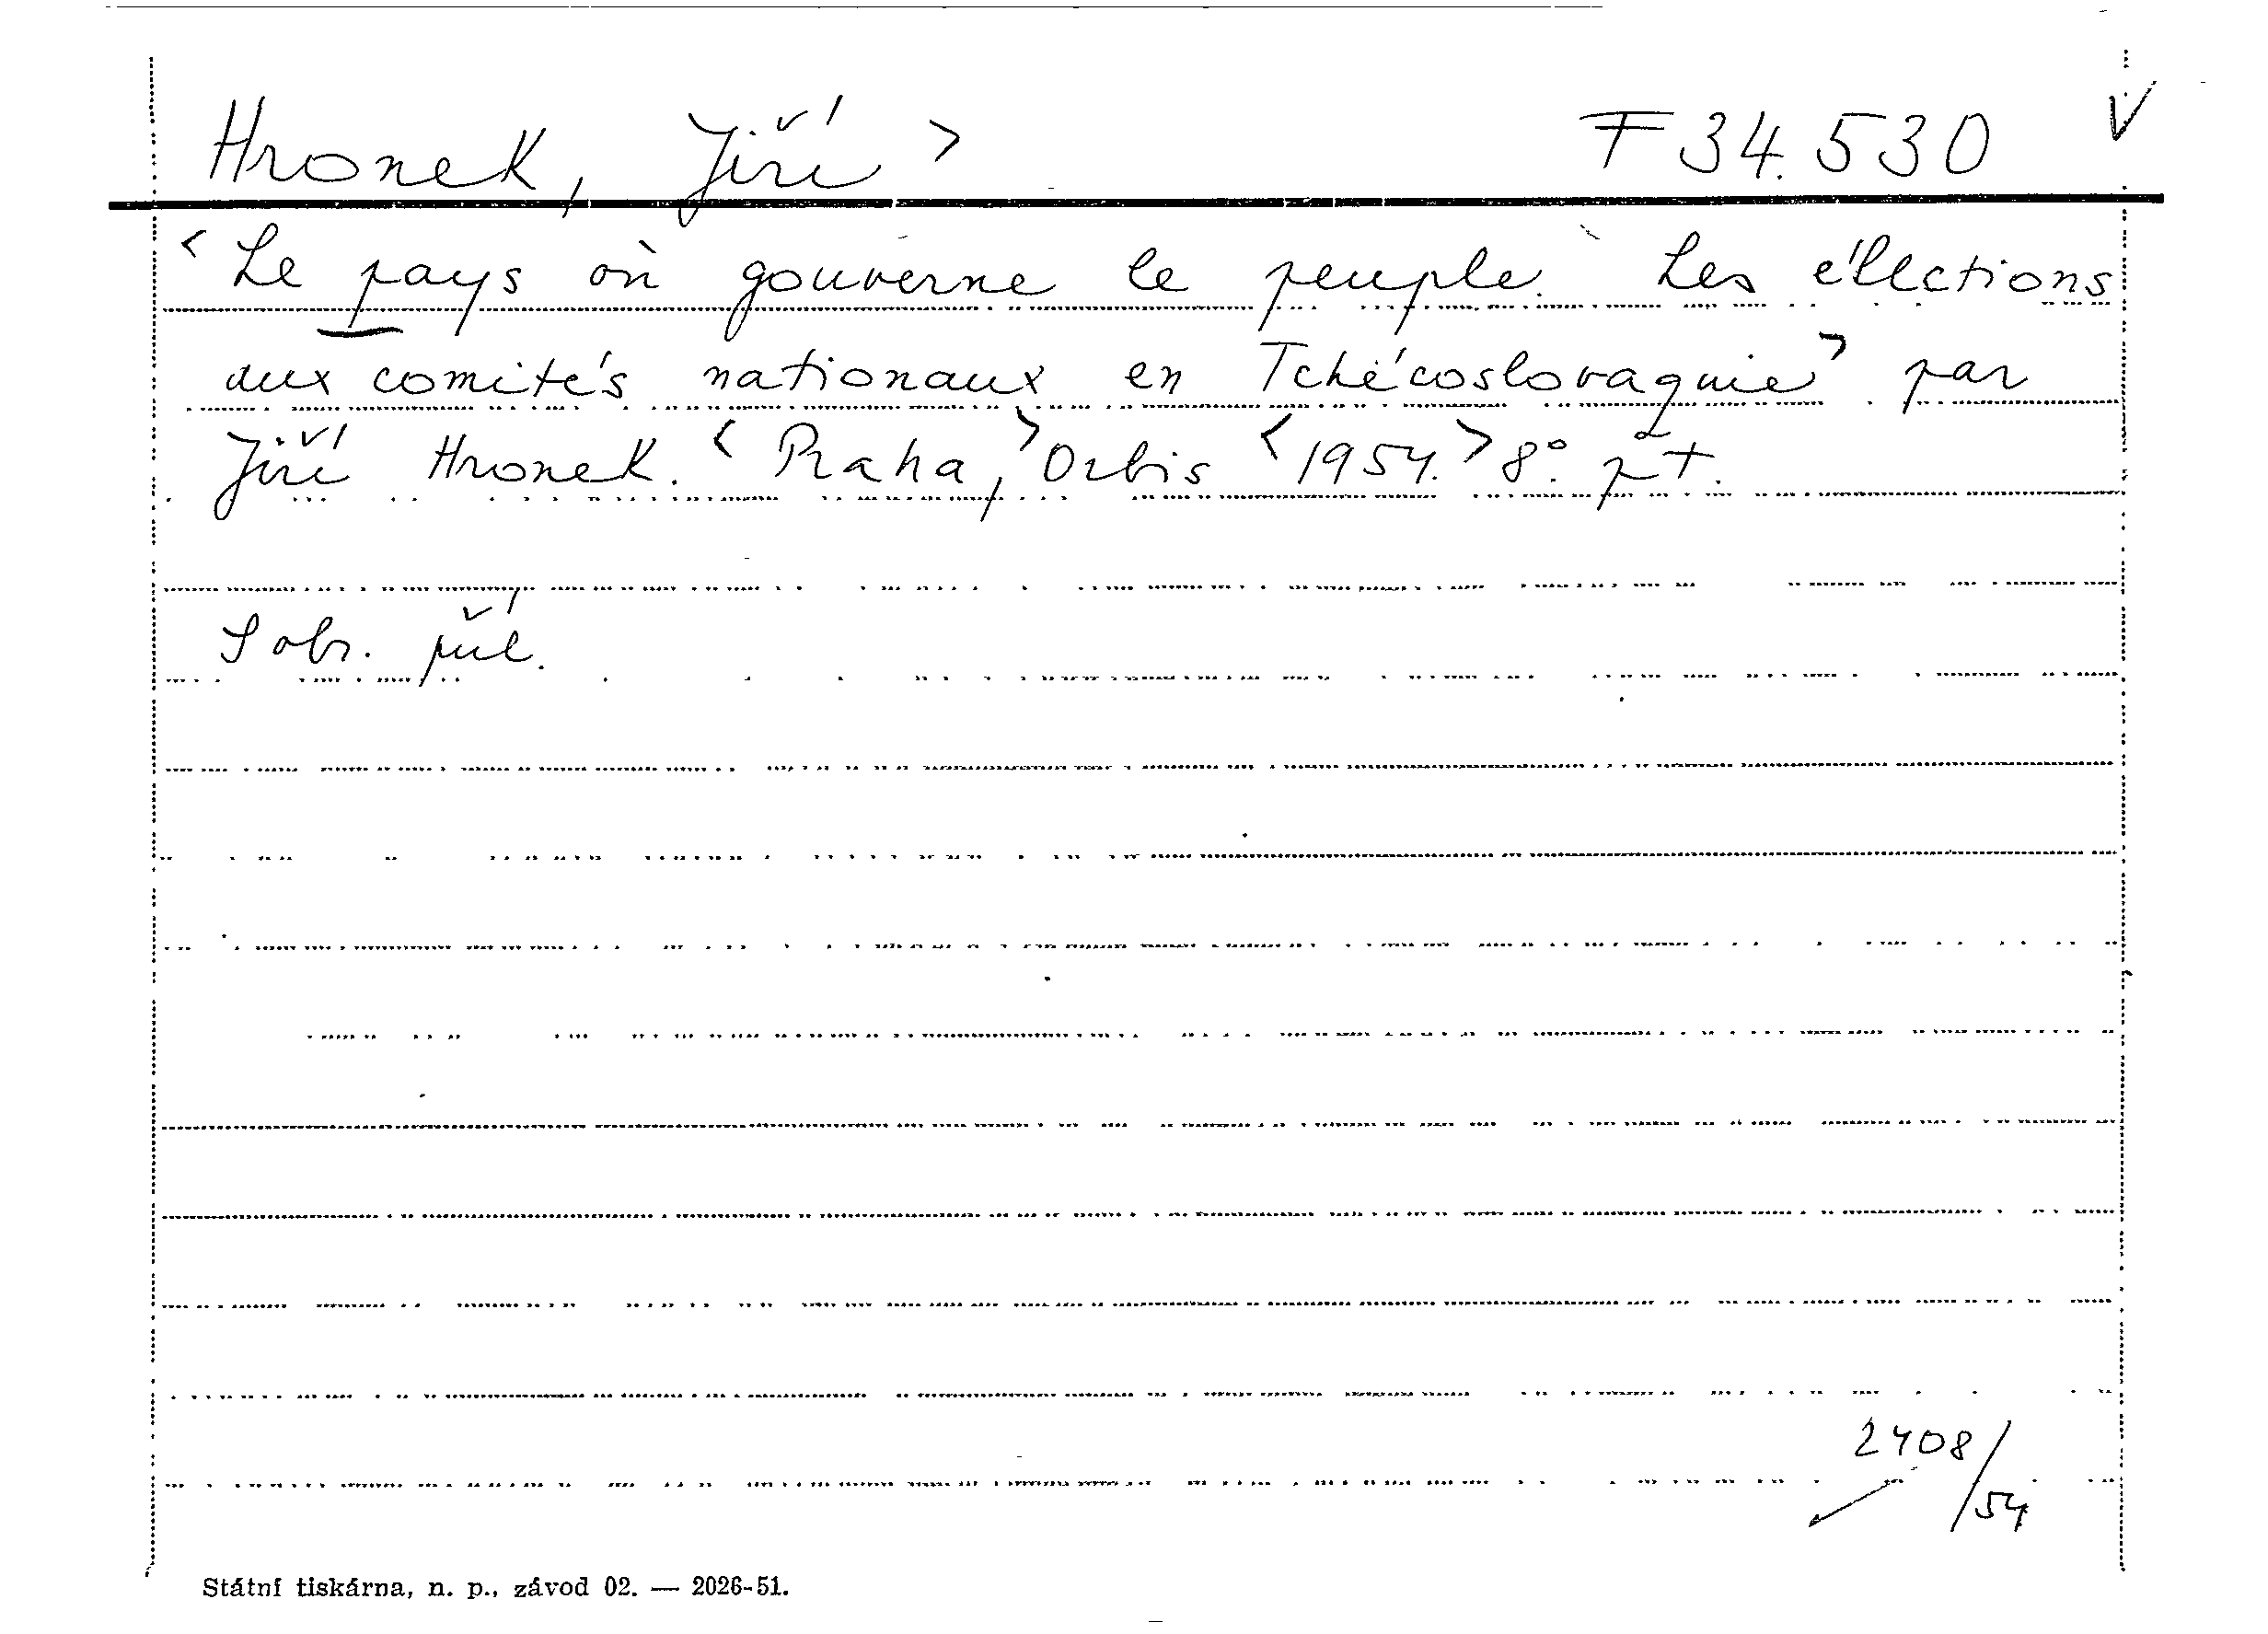 Hronek, Jiří > F 34.530 V
< Le pays où gouverne le peuple. Les éllections
aux comités nationaux en Tchécoslovaquie > par
Jiří Hronek. < Praha, > Orbis < 1954. > 8°.
S obr. příl.
2408/54
Státní tiskárna, n. p., závod 02. — 2026-51.